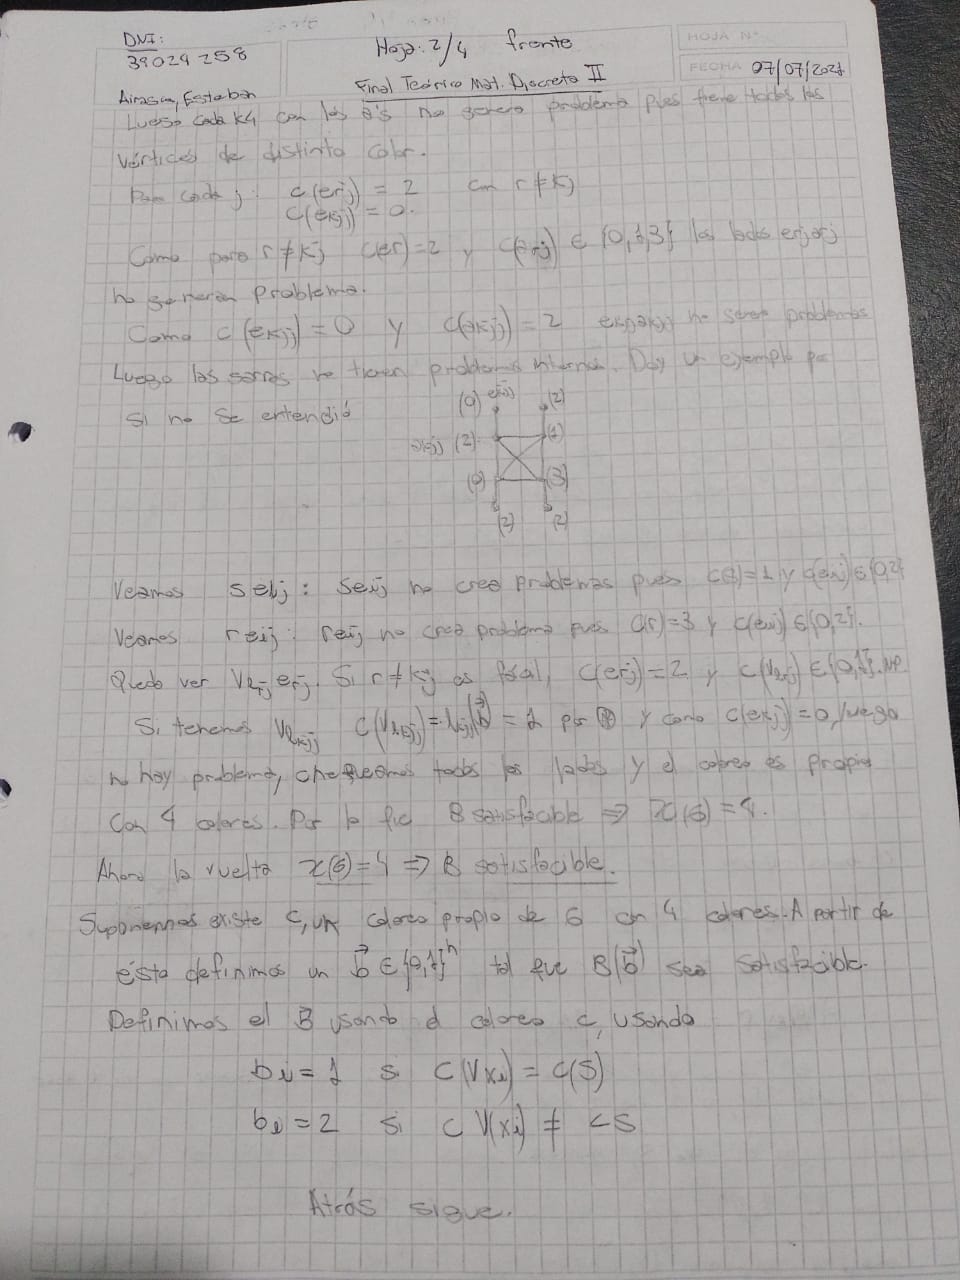 DNI:
39029258
Hoja: 2/4 frente
HOJA N°
FECHA 07/07/2021
Airasca, Esteban
Final Teórico Mat. Discreta II
Luego cada K4 con los a's no genera problema pues tiene todos los
vértices de distinto color.
Para cada j: c(erj) = 2 con r ≠ kj
c(ekjj) = 0.
Como para r ≠ kj c(er) = 2 y c(arj) ∈ {0,1,3} los lados erjarj
no generan problema.
Como c(ekjj) = 0 y c(akjj) = 2 ekjjakjj no generan problemas
Luego las garras no tienen problemas internos. Doy un ejemplo por
si no se entendió
(0) ekjj (2)
akjj (2) (1)
(0) (3)
(2) (2)
Veamos seij: seij no crea problemas pues c(s)=1 y c(eij) ∈ {0,2}
Veamos reij: reij no crea problema pues c(r)=3 y c(eij) ∈ {0,2}.
Queda ver Vlrj erj. Si r ≠ kj es trivial, c(erj) = 2 y c(Vlrj) ∈ {0,1}. NP
Si tenemos Vlkjj c(Vlkjj) = lkjj(b⃗) = 1 por ⊛ y como c(ekjj) = 0, luego
no hay problema, chequeamos todos los lados y el coloreo es propio
con 4 colores. Por lo tanto B satisfacible ⇒ χ(G) = 4.
Ahora la vuelta χ(G) = 4 ⇒ B satisfacible.
Suponemos existe C, un coloreo propio de G con 4 colores. A partir de
ésta definimos un b⃗ ∈ {0,1}ⁿ tal que B(b⃗) sea satisfacible.
Definimos el b⃗ usando el coloreo c, usando
bi = 1 si C(Vxi) = C(S)
bi = 2 si C V(xi) ≠ CS
Atrás sigue.